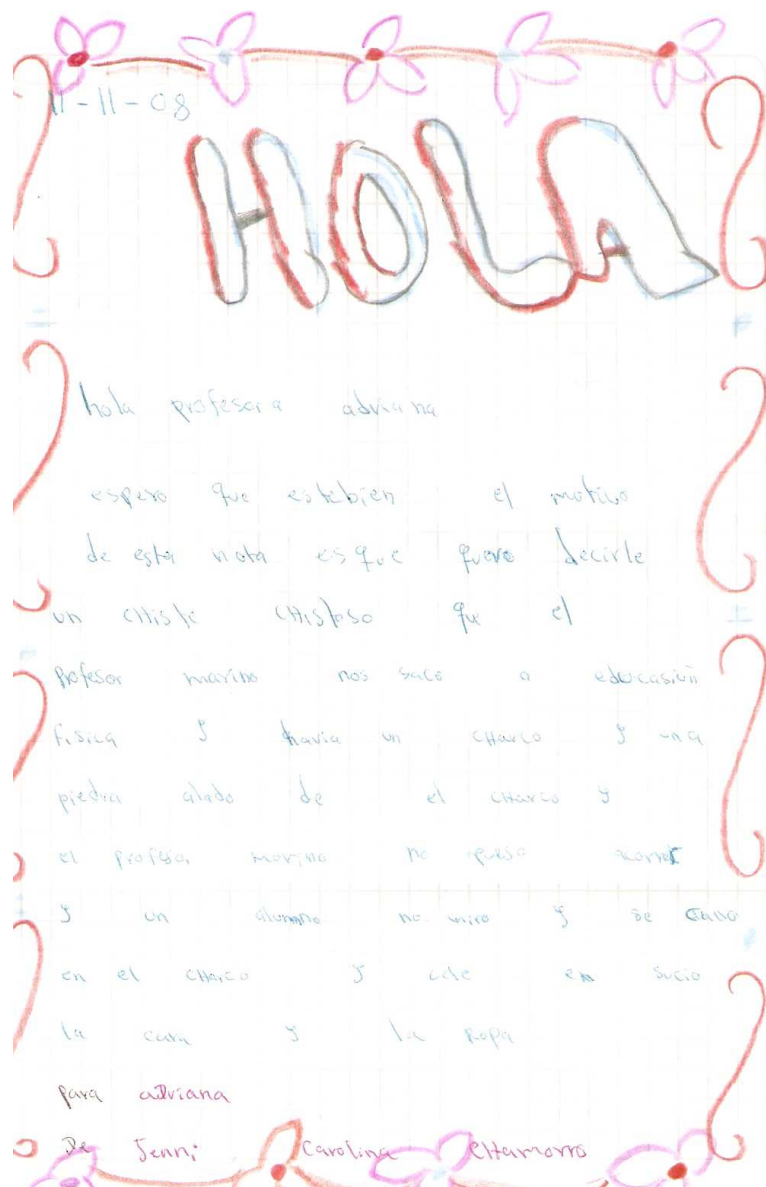 11-11-08
HOLA
hola profesora adriana
espero que estebien el motivo
de esta nota esque quero decirle
un CHiste CHistoso que el
Profesor marino nos saco a educasión
Fisica y havia un CHarco y una
piedra alado de el CHarco y
el profesor marino no
y un alumno no miro y se
en el CHarco y en sucio
la cara y la Ropa
para adriana
De Jenni Carolina CHamorro